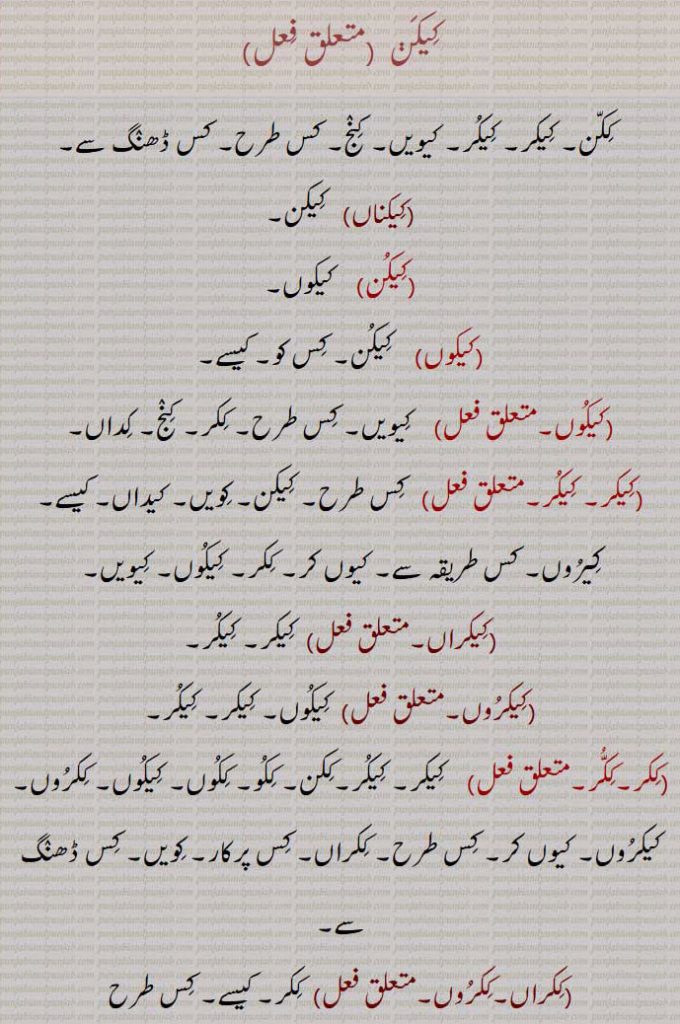 کِیکَن (متعلق فِعل)
کِکّن۔ کِیکر۔ کِیکُر۔ کیویں۔ کِنْج۔ کس طرح۔ کس ڈھنْگ سے۔
(کِیکناں) کِیکن۔
(کِیکُن) کیکوں۔
(کیکوں) کِیکُن۔ کِس کو۔ کیسے۔
(کیکُوں۔متعلق فعل) کِیویں۔ کِس طرح۔ کِکر۔ کِنْج۔ کِداں۔
(کِیکر۔ کِیکُر۔متعلق فعل) کِس طرح۔ کِیکن۔ کِویں۔ کیداں۔ کیسے۔
کِیرُوں۔ کس طریقہ سے۔ کیوں کر۔ کِکر۔ کِیکُوں۔ کِیویں۔
(کِیکراں۔متعلق فعل) کِیکر۔ کِیکُر۔
(کِیکرُوں۔متعلق فعل) کِیکُوں۔ کِیکر۔ کِیکُر۔
(کِکر۔کِکُّر۔متعلق فعل) کِیکر۔ کِیکُر۔کِکن۔ کِکُو۔ کِکُوں۔ کِیکُوں۔ کِکرُوں۔
کیکرُوں۔ کیوں کر۔ کِس طرح۔ کِکراں۔ کِس پرکار۔ کِویں۔ کِس ڈھنْگ
سے۔
(کِکراں۔کِکرُوں۔متعلق فعل) کِکر۔ کیسے۔ کِس طرح